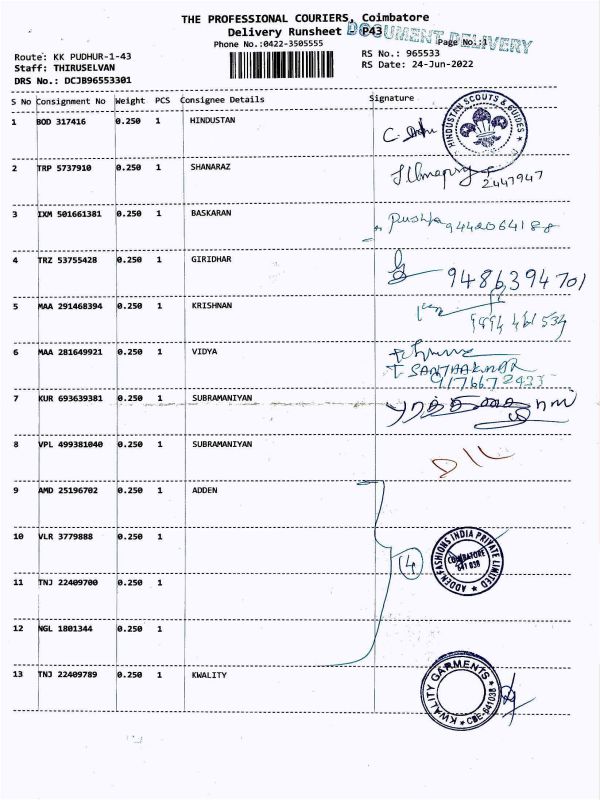 THE PROFESSIONAL COURIERS, Coimbatore
Delivery Runsheet P43
DOCUMENT DELIVERY
Phone No.:0422-3505555
Page No.:1
Route: KK PUDHUR-1-43
RS No.: 965533
Staff: THIRUSELVAN
RS Date: 24-Jun-2022
DRS No.: DCJB96553301
S No Consignment No Weight PCS Consignee Details Signature
1 BOD 317416 0.250 1 HINDUSTAN
HINDUSTAN SCOUTS & GUIDES
2 TRP 5737910 0.250 1 SHANARAZ
2447947
3 IXM 501661381 0.250 1 BASKARAN
Pushpa 9442064188
4 TRZ 53755428 0.250 1 GIRIDHAR
9486394701
5 MAA 291468394 0.250 1 KRISHNAN
6 MAA 281649921 0.250 1 VIDYA
7 KUR 693639381 0.250 1 SUBRAMANIYAN
8 VPL 499381040 0.250 1 SUBRAMANIYAN
9 AMD 25196702 0.250 1 ADDEN
10 VLR 3779888 0.250 1
4
ADDEN FASHIONS INDIA PRIVATE LIMITED
COIMBATORE
641 038
11 TNJ 22409700 0.250 1
12 NGL 1801344 0.250 1
13 TNJ 22409789 0.250 1 KWALITY
KWALITY GARMENTS
CBE-641038